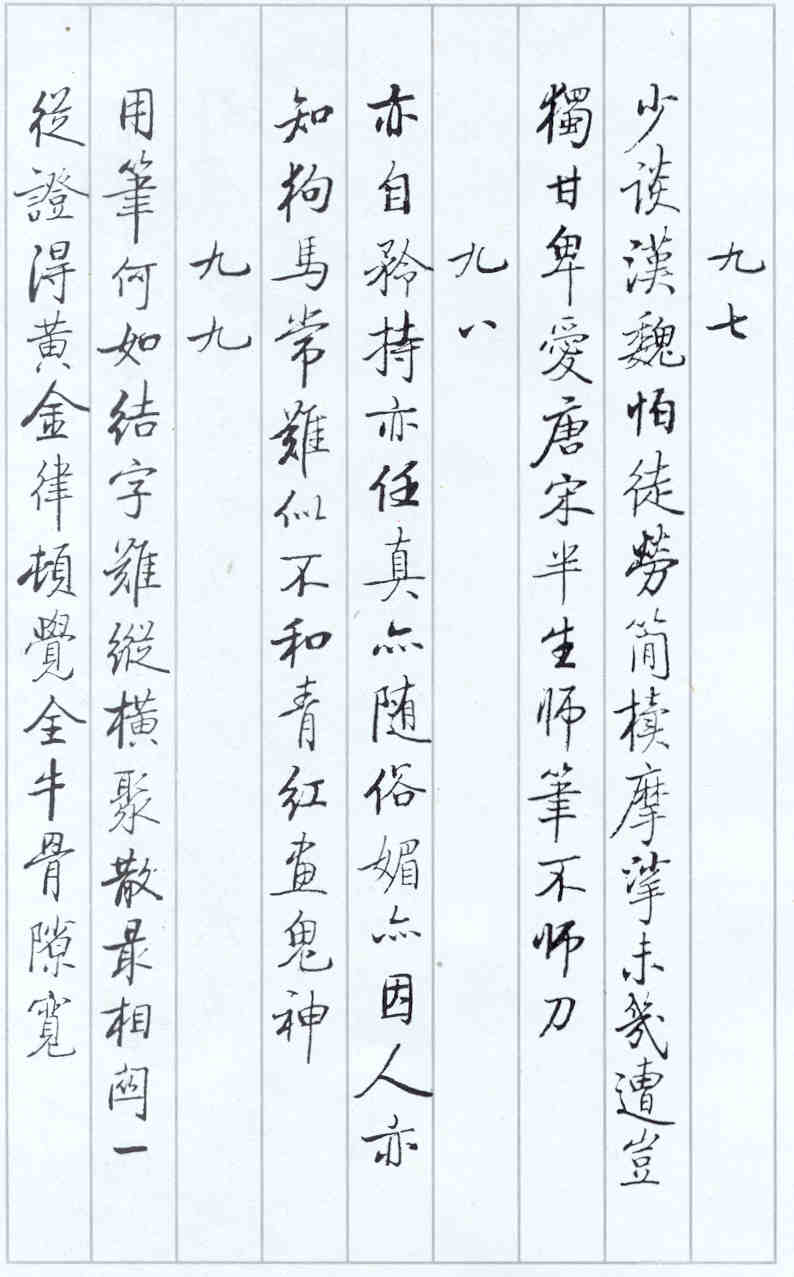 九七
少谈漢魏怕徒勞简櫝摩挲未幾遭豈
獨甘卑愛唐宋半生师筆不师刀
九八
亦自矜持亦任真亦随俗媚亦因人亦
知狗馬常難似不和青红畫鬼神
九九
用筆何如结字難縱横聚散最相関一
從證得黄金律頓覺全牛骨隙寬